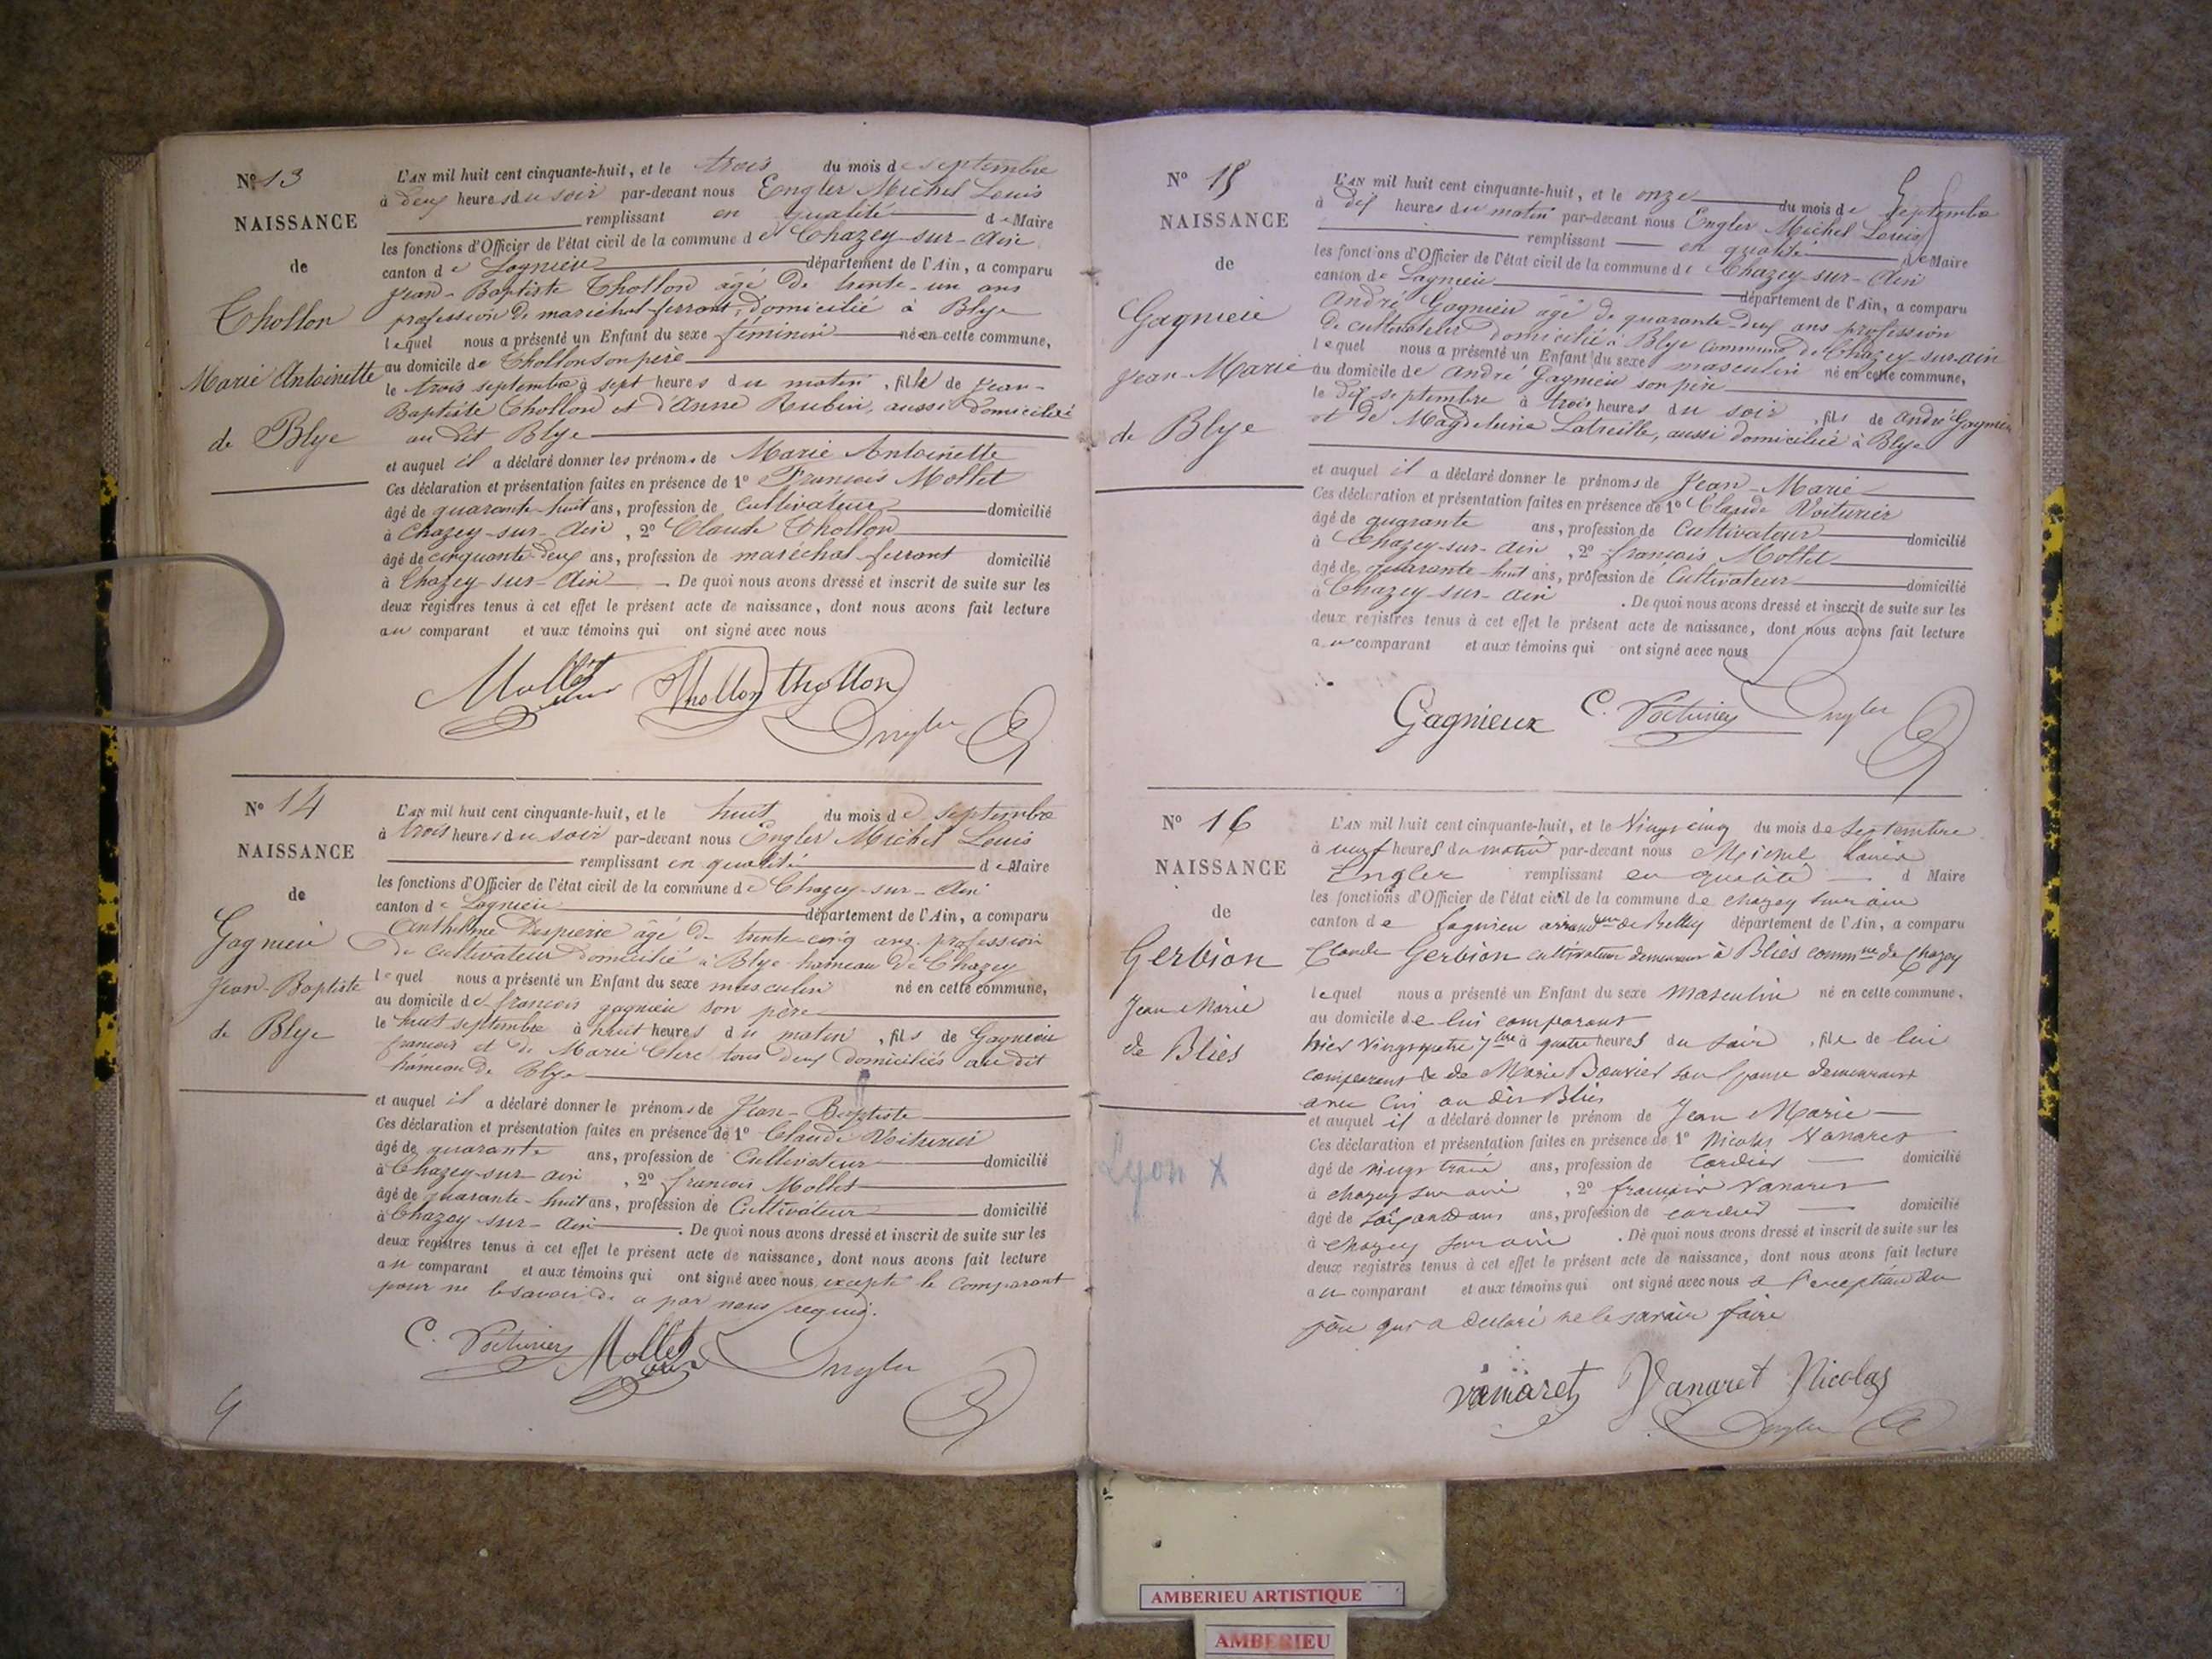 N° 13
NAISSANCE
de
Thollon
Marie Antoinette
de Blye
L'AN mil huit cent cinquante-huit, et le trois du mois de septembre
à deux heures du soir par-devant nous Engler Michel Louis
remplissant en qualité de Maire
les fonctions d'Officier de l'état civil de la commune de Chazey-sur-Ain
canton de Lagnieu département de l'Ain, a comparu
Jean-Baptiste Thollon âgé de trente-un ans
profession de maréchal-ferrant, domicilié à Blye
lequel nous a présenté un Enfant du sexe féminin né en cette commune,
au domicile de Thollon son père
le trois septembre à sept heures du matin, fille de Jean-
Baptiste Thollon et d'Anne Rubin, aussi domicilié
au dit Blye
et auquel il a déclaré donner les prénoms de Marie Antoinette
Ces déclaration et présentation faites en présence de 1° François Mollet
âgé de quarante-huit ans, profession de Cultivateur domicilié
à Chazey-sur-Ain, 2° Claude Thollon
âgé de cinquante-deux ans, profession de maréchal-ferrant domicilié
à Chazey-sur-Ain. De quoi nous avons dressé et inscrit de suite sur les
deux registres tenus à cet effet le présent acte de naissance, dont nous avons fait lecture
au comparant et aux témoins qui ont signé avec nous
Mollet Thollon Thollon
Engler
N° 14
NAISSANCE
de
Gagnieu
Jean-Baptiste
de Blye
L'AN mil huit cent cinquante-huit, et le huit du mois de septembre
à trois heures du soir par-devant nous Engler Michel Louis
remplissant en qualité de Maire
les fonctions d'Officier de l'état civil de la commune de Chazey-sur-Ain
canton de Lagnieu département de l'Ain, a comparu
Anthelme Despierre âgé de trente-cinq ans, profession
de cultivateur domicilié à Blye hameau de Chazey
lequel nous a présenté un Enfant du sexe masculin né en cette commune,
au domicile de françois gagnieu son père
le huit septembre à huit heures du matin, fils de Gagnieu
françois et de Marie Clerc tous deux domiciliés au dit
hameau de Blye
et auquel il a déclaré donner le prénoms de Jean-Baptiste
Ces déclaration et présentation faites en présence de 1° Claude Voiturier
âgé de quarante ans, profession de Cultivateur domicilié
à Chazey-sur-ain, 2° françois Mollet
âgé de quarante-huit ans, profession de Cultivateur domicilié
à Chazey-sur-Ain. De quoi nous avons dressé et inscrit de suite sur les
deux registres tenus à cet effet le présent acte de naissance, dont nous avons fait lecture
au comparant et aux témoins qui ont signé avec nous, excepté le Comparant
pour ne le savoir de a par nous requis.
C. Voiturier Mollet Engler
N° 15
NAISSANCE
de
Gagnieu
Jean-Marie
de Blye
L'AN mil huit cent cinquante-huit, et le onze du mois de Septembre
à dix heures du matin par-devant nous Engler Michel Louis
remplissant en qualité de Maire
les fonctions d'Officier de l'état civil de la commune de Chazey-sur-Ain
canton de Lagnieu département de l'Ain, a comparu
André Gagnieu âgé de quarante-deux ans profession
de cultivateur domicilié à Blye Commune de Chazey-sur-ain
lequel nous a présenté un Enfant du sexe masculin né en cette commune,
au domicile de André Gagnieu son père
le dix septembre à trois heures du soir, fils de André Gagnieu
et de Magdeleine Latreille, aussi domicilié à Blye
et auquel il a déclaré donner le prénoms de Jean-Marie
Ces déclaration et présentation faites en présence de 1° Claude Voiturier
âgé de quarante ans, profession de Cultivateur domicilié
à Chazey-sur-Ain, 2° françois Mollet
âgé de quarante-huit ans, profession de Cultivateur domicilié
à Chazey-sur-ain. De quoi nous avons dressé et inscrit de suite sur les
deux registres tenus à cet effet le présent acte de naissance, dont nous avons fait lecture
au comparant et aux témoins qui ont signé avec nous
Gagnieux C. Voiturier Engler
N° 16
NAISSANCE
de
Gerbion
Jean Marie
de Bliés
Lyon X
L'AN mil huit cent cinquante-huit, et le Vingt cinq du mois de Septembre
à neuf heures du matin par-devant nous Michel Louis
Engler remplissant en qualité d Maire
les fonctions d'Officier de l'état civil de la commune de chazey sur ain
canton de Lagnieu arrond de Belley département de l'Ain, a comparu
Claude Gerbion cultivateur demeurant à Bliés comm^ne de Chazey
lequel nous a présenté un Enfant du sexe Masculin né en cette commune,
au domicile de lui comparant
hier vingt quatre 7bre à quatre heures du soir, fils de lui
comparant & de Marie Bouvier son épouse demeurant
avec lui au dit Bliés
et auquel il a déclaré donner le prénom de Jean Marie
Ces déclaration et présentation faites en présence de 1° Nicolas Vanaret
âgé de vingt trois ans, profession de Cordier domicilié
à chazey sur ain, 2° françois Vanaret
âgé de soixante ans ans, profession de cordier domicilié
à chazey sur ain. De quoi nous avons dressé et inscrit de suite sur les
deux registres tenus à cet effet le présent acte de naissance, dont nous avons fait lecture
au comparant et aux témoins qui ont signé avec nous a l'exception du
père qui a déclaré ne le savoir faire
vanaret Vanaret Nicolas
Engler
AMBERIEU ARTISTIQUE
AMBERIEU